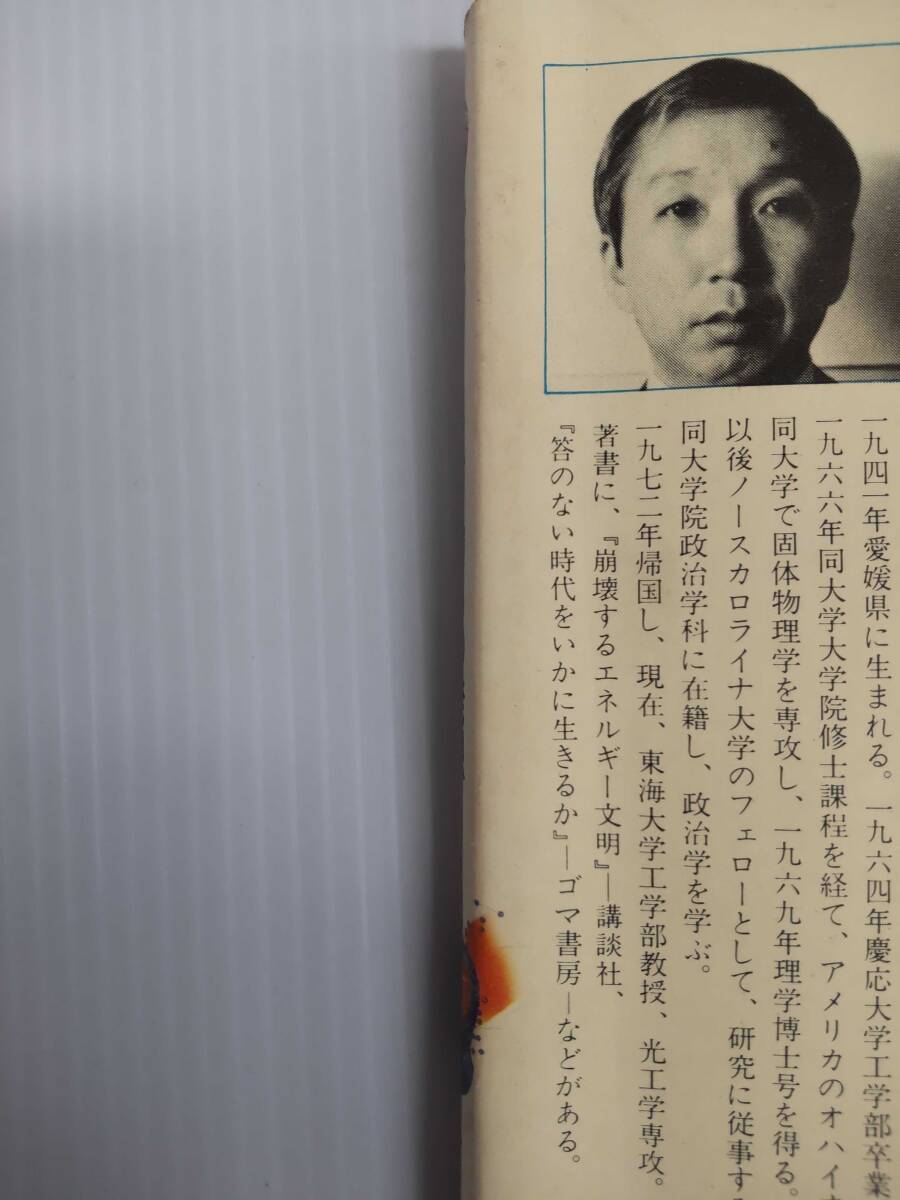 一九四一年愛媛県に生まれる。一九六四年慶応大学工学部卒業
一九六六年同大学大学院修士課程を経て、アメリカのオハイ
同大学で固体物理学を専攻し、一九六九年理学博士号を得る。
以後ノースカロライナ大学のフェローとして、研究に従事す
同大学院政治学科に在籍し、政治学を学ぶ。
一九七二年帰国し、現在、東海大学工学部教授、光工学専攻。
著書に、『崩壊するエネルギー文明』―講談社、
『答のない時代をいかに生きるか』―ゴマ書房―などがある。